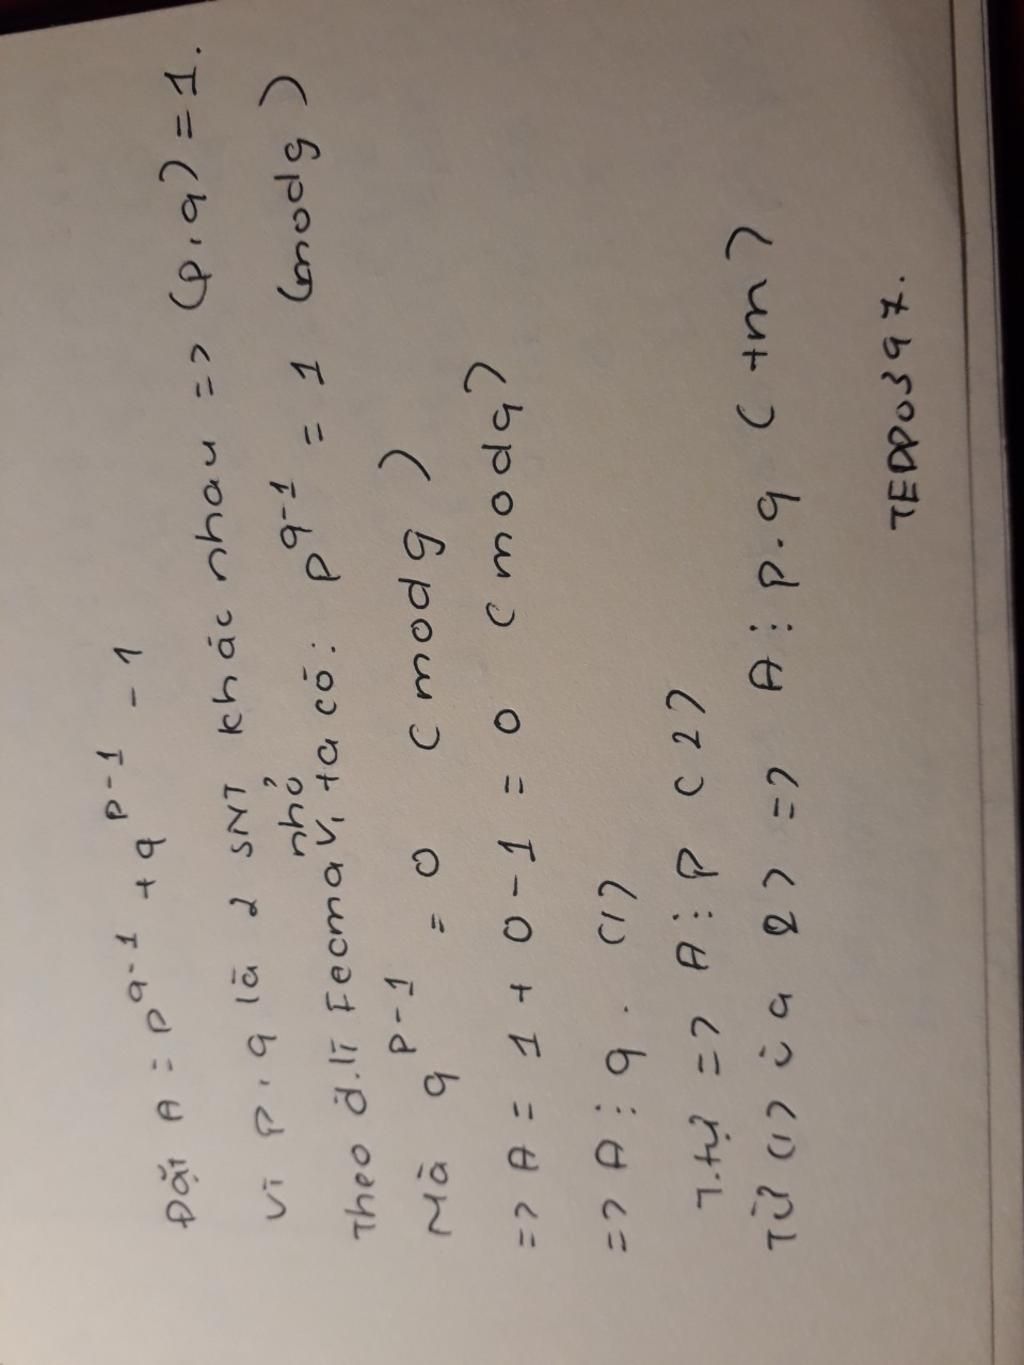 Đặt A = p^q-1 + q^p-1 - 1
Vì p, q là 2 SNT khác nhau => (p,q) = 1.
Theo đ.lí Fecma nhỏ, ta có: p^q-1 = 1 (mod q)
Mà q^p-1 = 0 (mod q)
=> A = 1 + 0 - 1 = 0 (mod q)
=> A ⋮ q. (1)
T.tự => A ⋮ p (2)
Từ (1) và 2) => A ⋮ p.q (+m)